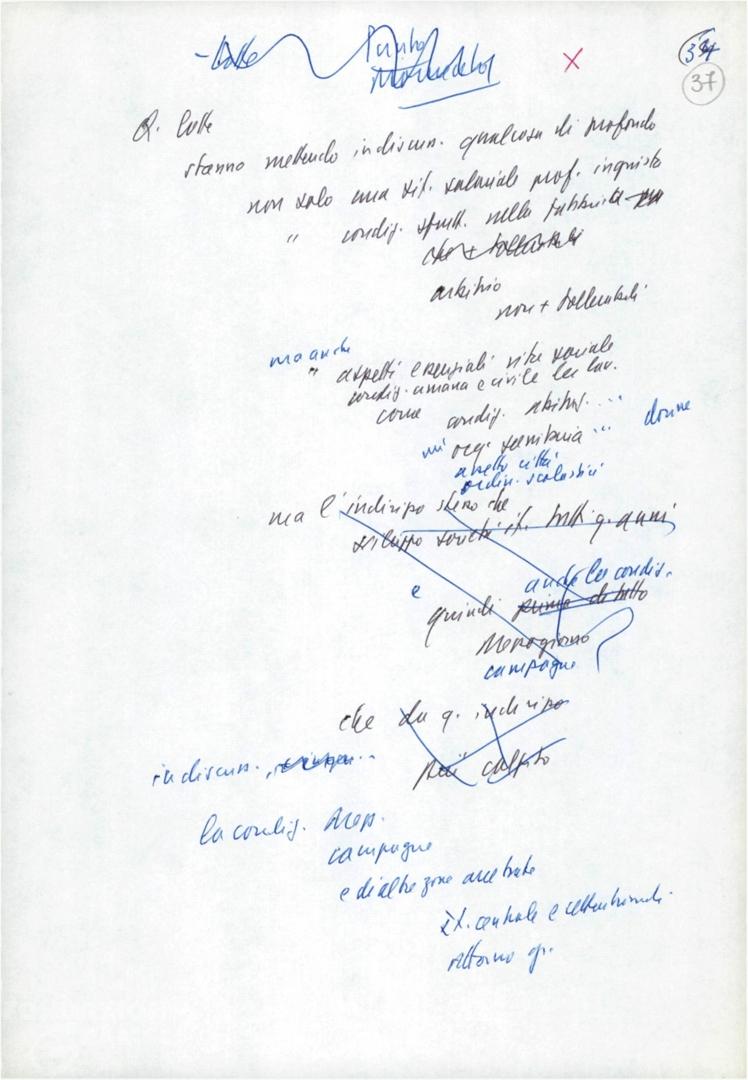 - Lotte
34
37
Q. lotte
stanno mettendo in discuss. qualcosa di profondo
non solo una sit. salariale prof. ingiusta
" condiz. sfrutt. nella fabbrica
che + tollerabili
arbitrio
non + tollerabili
ma anche
" aspetti essenziali vita sociale
condiz. umana e civile lav.
come condiz. abitaz. ...
org. sanitaria ... donne
assetto città
ordin. scolastici
ma l'indirizzo stesso che
sviluppo società it. tutti q. anni
e anche condiz.
quindi prima di tutto
Mezzogiorno
campagne
che da q. indirizzo
più colpito
in discuss.
la condiz. Mezz.
campagne
e di altre zone arretrate
it. centrale e settentrionale
ritorno